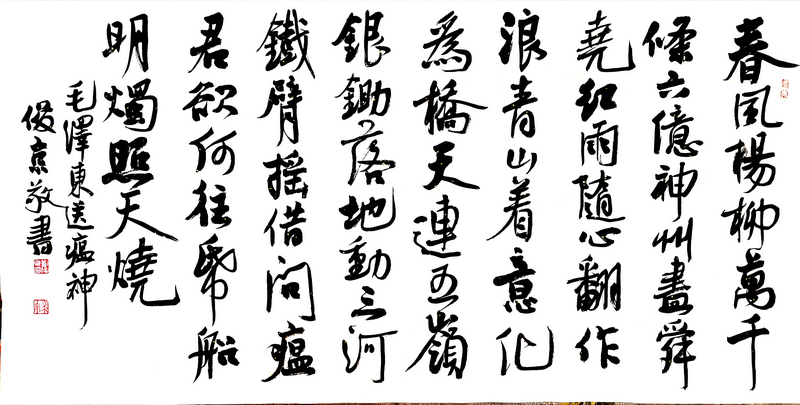 春風楊柳萬千
條六億神州盡舜
堯紅雨隨心翻作
浪青山着意化
為橋天連五嶺
銀鋤落地動三河
鐵臂摇借問瘟
君欲何往帋船
明燭照天燒
毛澤東送瘟神
俊京敬書